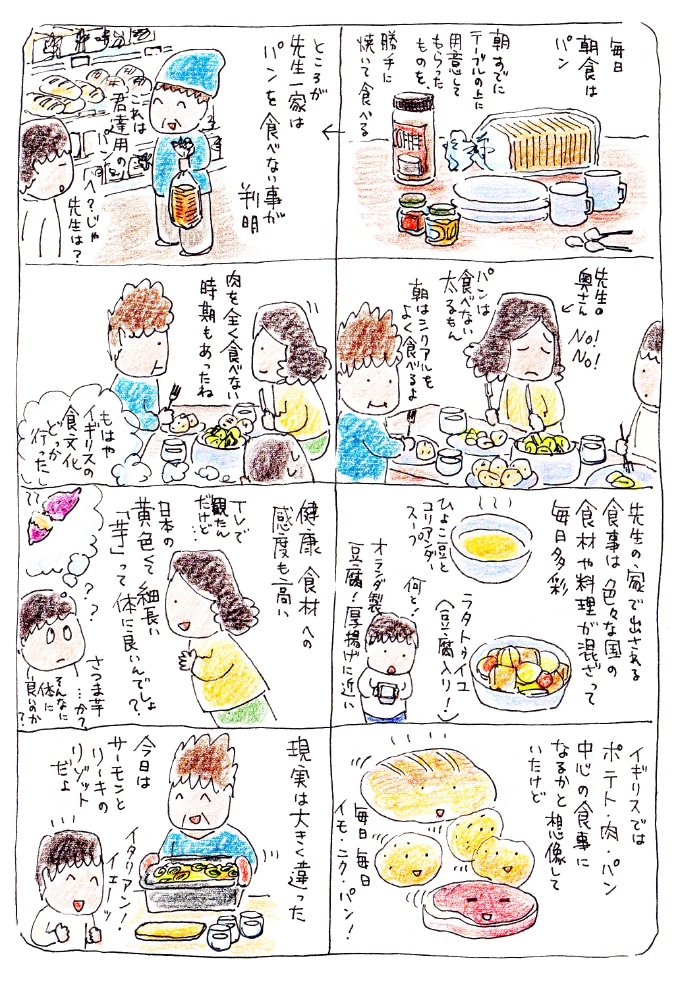 毎日
朝食は
パン
朝すでに
テーブルの上に
用意して
もらった
ものを、
勝手に
焼いて食べる
COFFEE
ところが
先生一家は
パンを食べない事が
判明
これは
君達用の
パン
へ?じゃ
先生は?
先生の
奥さん
No!
No!
パンは
食べない
太るもん
朝はシリアルを
よく食べるよ
肉を全く食べない
時期もあったね
もはや
イギリスの
食文化
どっか
行った
先生の家で出される
食事は色々な国の
食材や料理が混ざって
毎日多彩
ひよこ豆と
コリアンダー
スープ
ラタトゥイユ
(豆腐入り!)
何と!
オランダ製
豆腐!厚揚げに近い
健康食材への
感度も高い
TVで
観たん
だけど…
日本の
黄色くて細長い
「芋」って
体に良いんでしょ?
???
さつま芋
…か?
そんなに
体に
良いのか?
イギリスでは
ポテト・肉・パン
中心の食事に
なるかと想像して
いたけど
毎日毎日
イモ・ニク・パン!
現実は大きく違った
今日は
サーモンと
リーキの
リゾット
だよ
イタリアン!
イェーッ